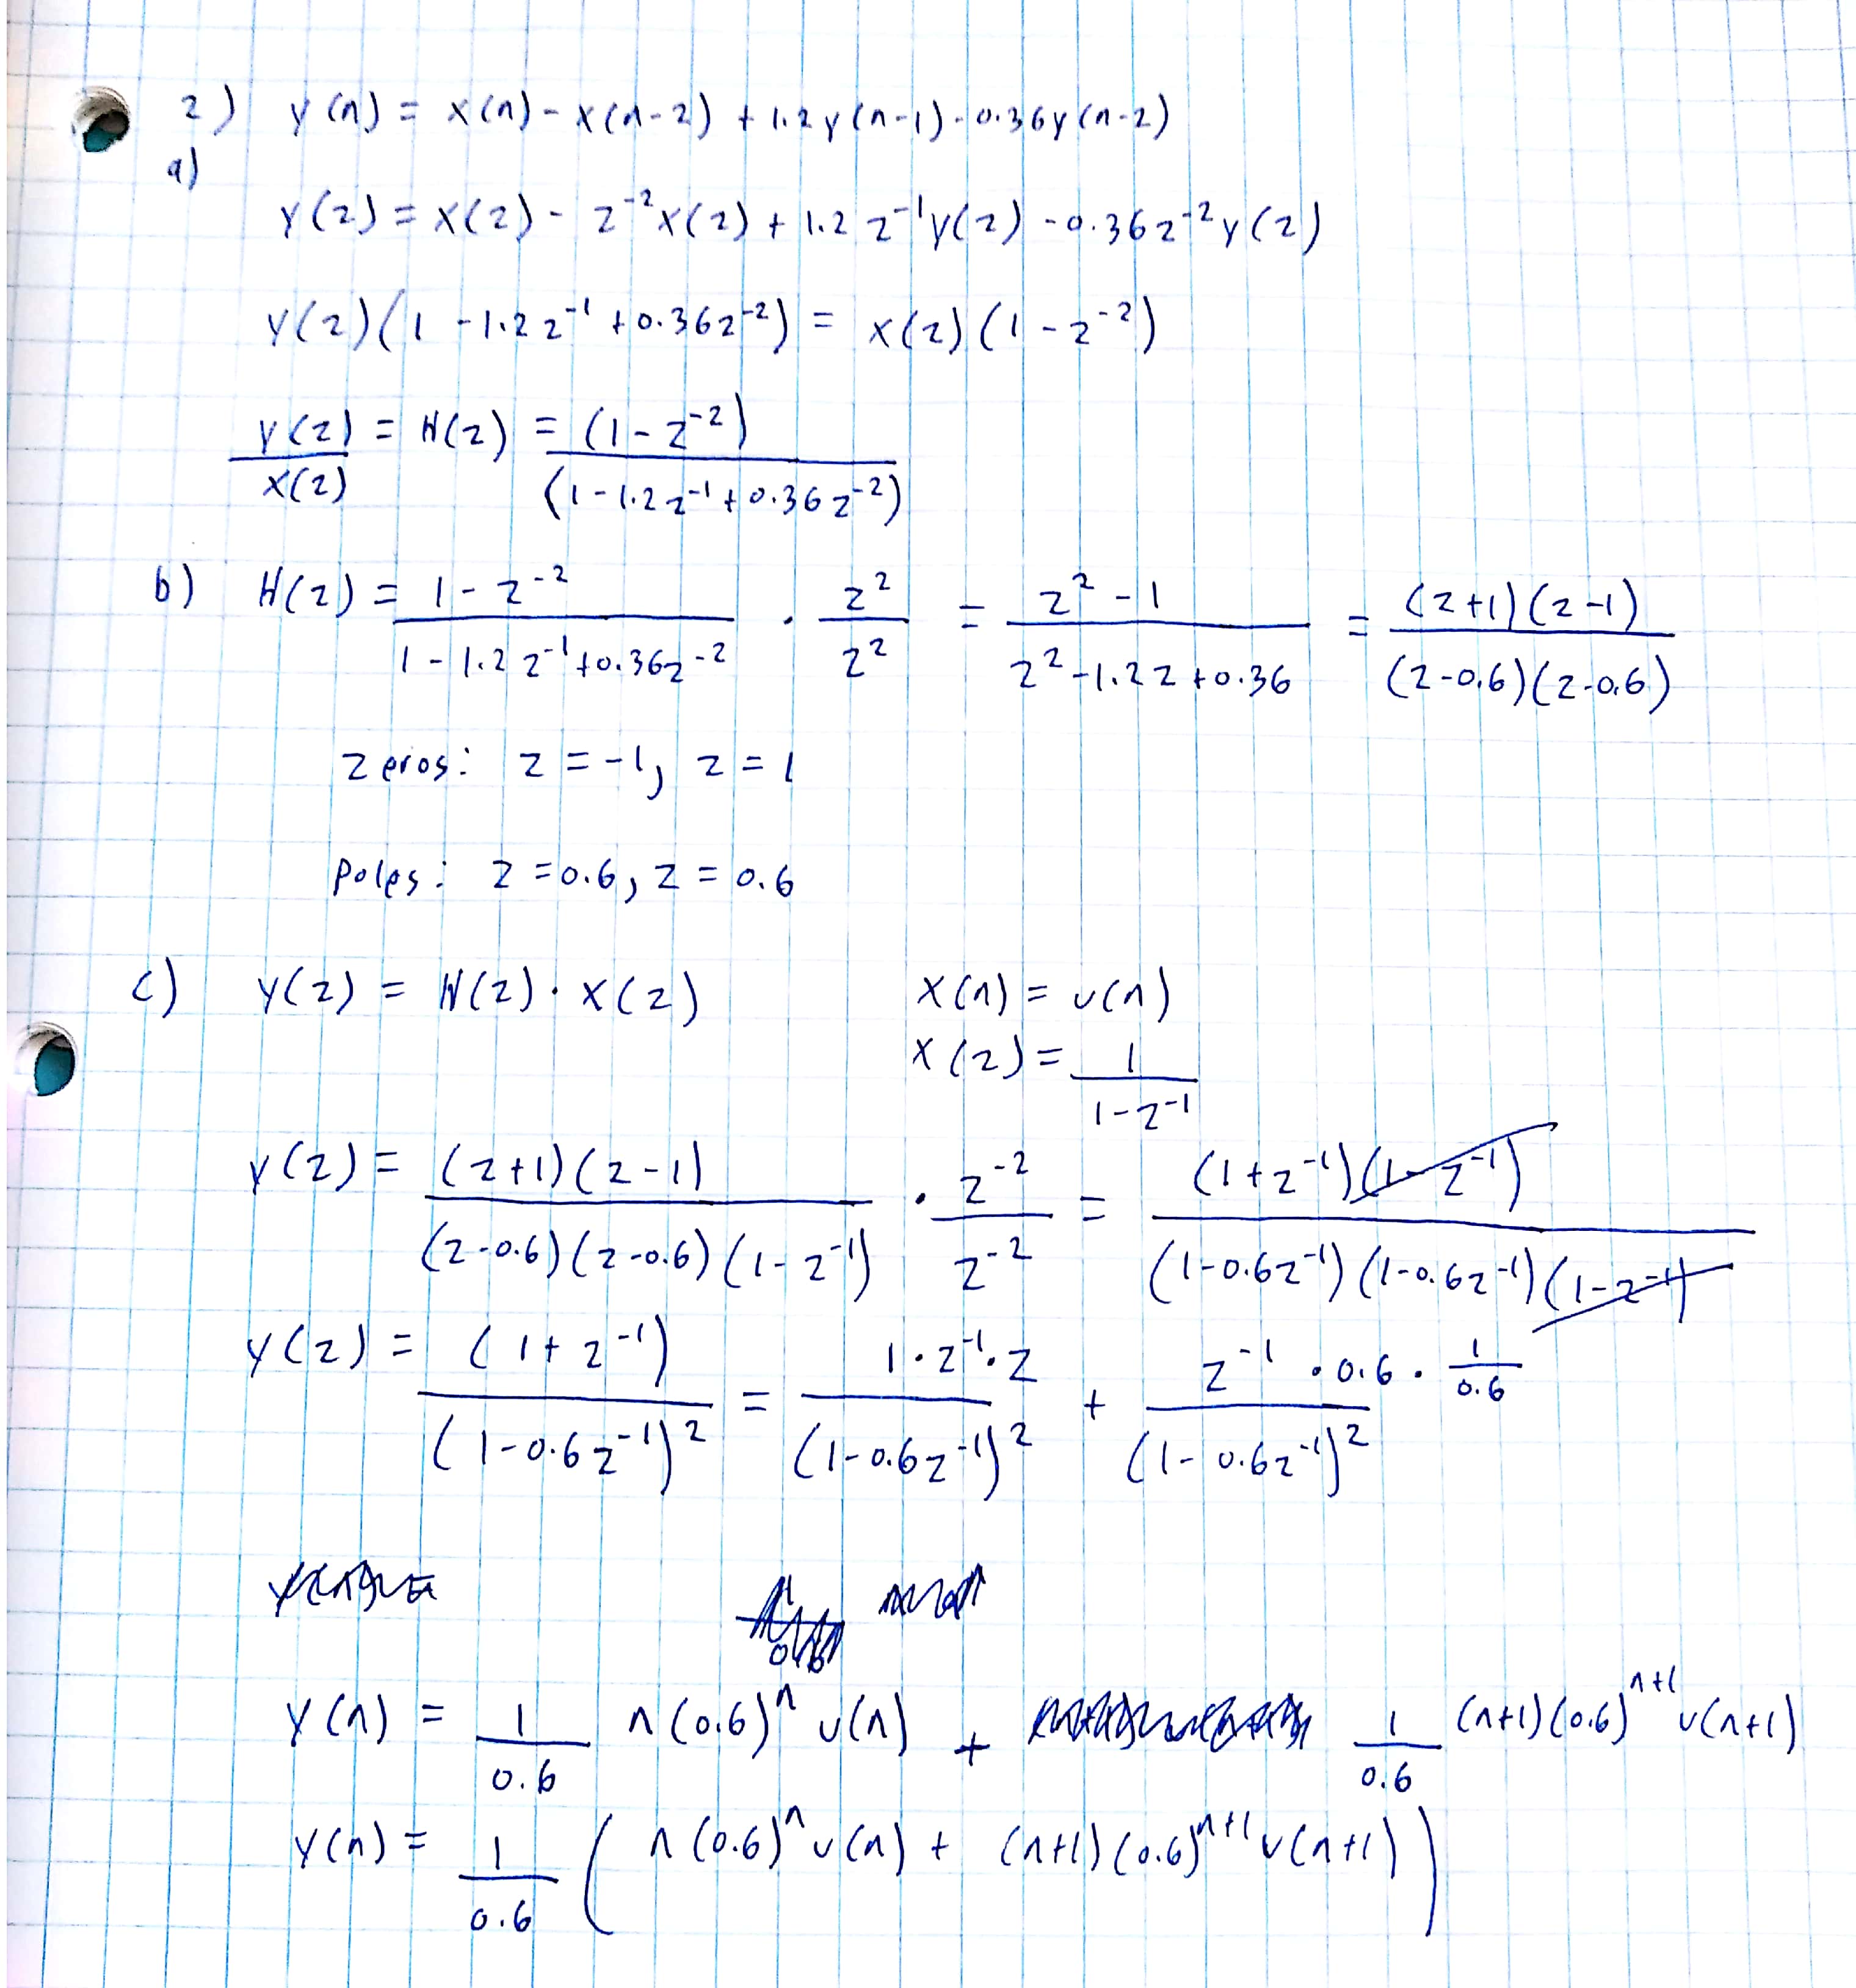 2) y(n) = x(n) - x(n-2) + 1.2y(n-1) - 0.36y(n-2)
a)
Y(z) = X(z) - z^-2 X(z) + 1.2 z^-1 Y(z) - 0.36z^-2 Y(z)
Y(z)(1 - 1.2z^-1 + 0.36z^-2) = X(z)(1 - z^-2)
Y(z)/X(z) = H(z) = (1 - z^-2)/(1 - 1.2z^-1 + 0.36z^-2)
b) H(z) = (1 - z^-2)/(1 - 1.2z^-1 + 0.36z^-2) · z^2/z^2 = (z^2 - 1)/(z^2 - 1.2z + 0.36) = (z+1)(z-1)/(z-0.6)(z-0.6)
zeros: z = -1, z = 1
poles: z = 0.6, z = 0.6
c) Y(z) = H(z) · X(z) x(n) = u(n)
X(z) = 1/(1 - z^-1)
Y(z) = (z+1)(z-1)/(z-0.6)(z-0.6)(1-z^-1) · z^-2/z^-2 = (1+z^-1)(1-z^-1)/(1-0.6z^-1)(1-0.6z^-1)(1-z^-1)
Y(z) = (1+z^-1)/(1-0.6z^-1)^2 = 1·z^-1·z/(1-0.6z^-1)^2 + z^-1 · 0.6 · 1/0.6/(1-0.6z^-1)^2
y(n) = 1/0.6 n(0.6)^n u(n) + 1/0.6 (n+1)(0.6)^n+1 u(n+1)
y(n) = 1/0.6 ( n(0.6)^n u(n) + (n+1)(0.6)^n+1 u(n+1) )